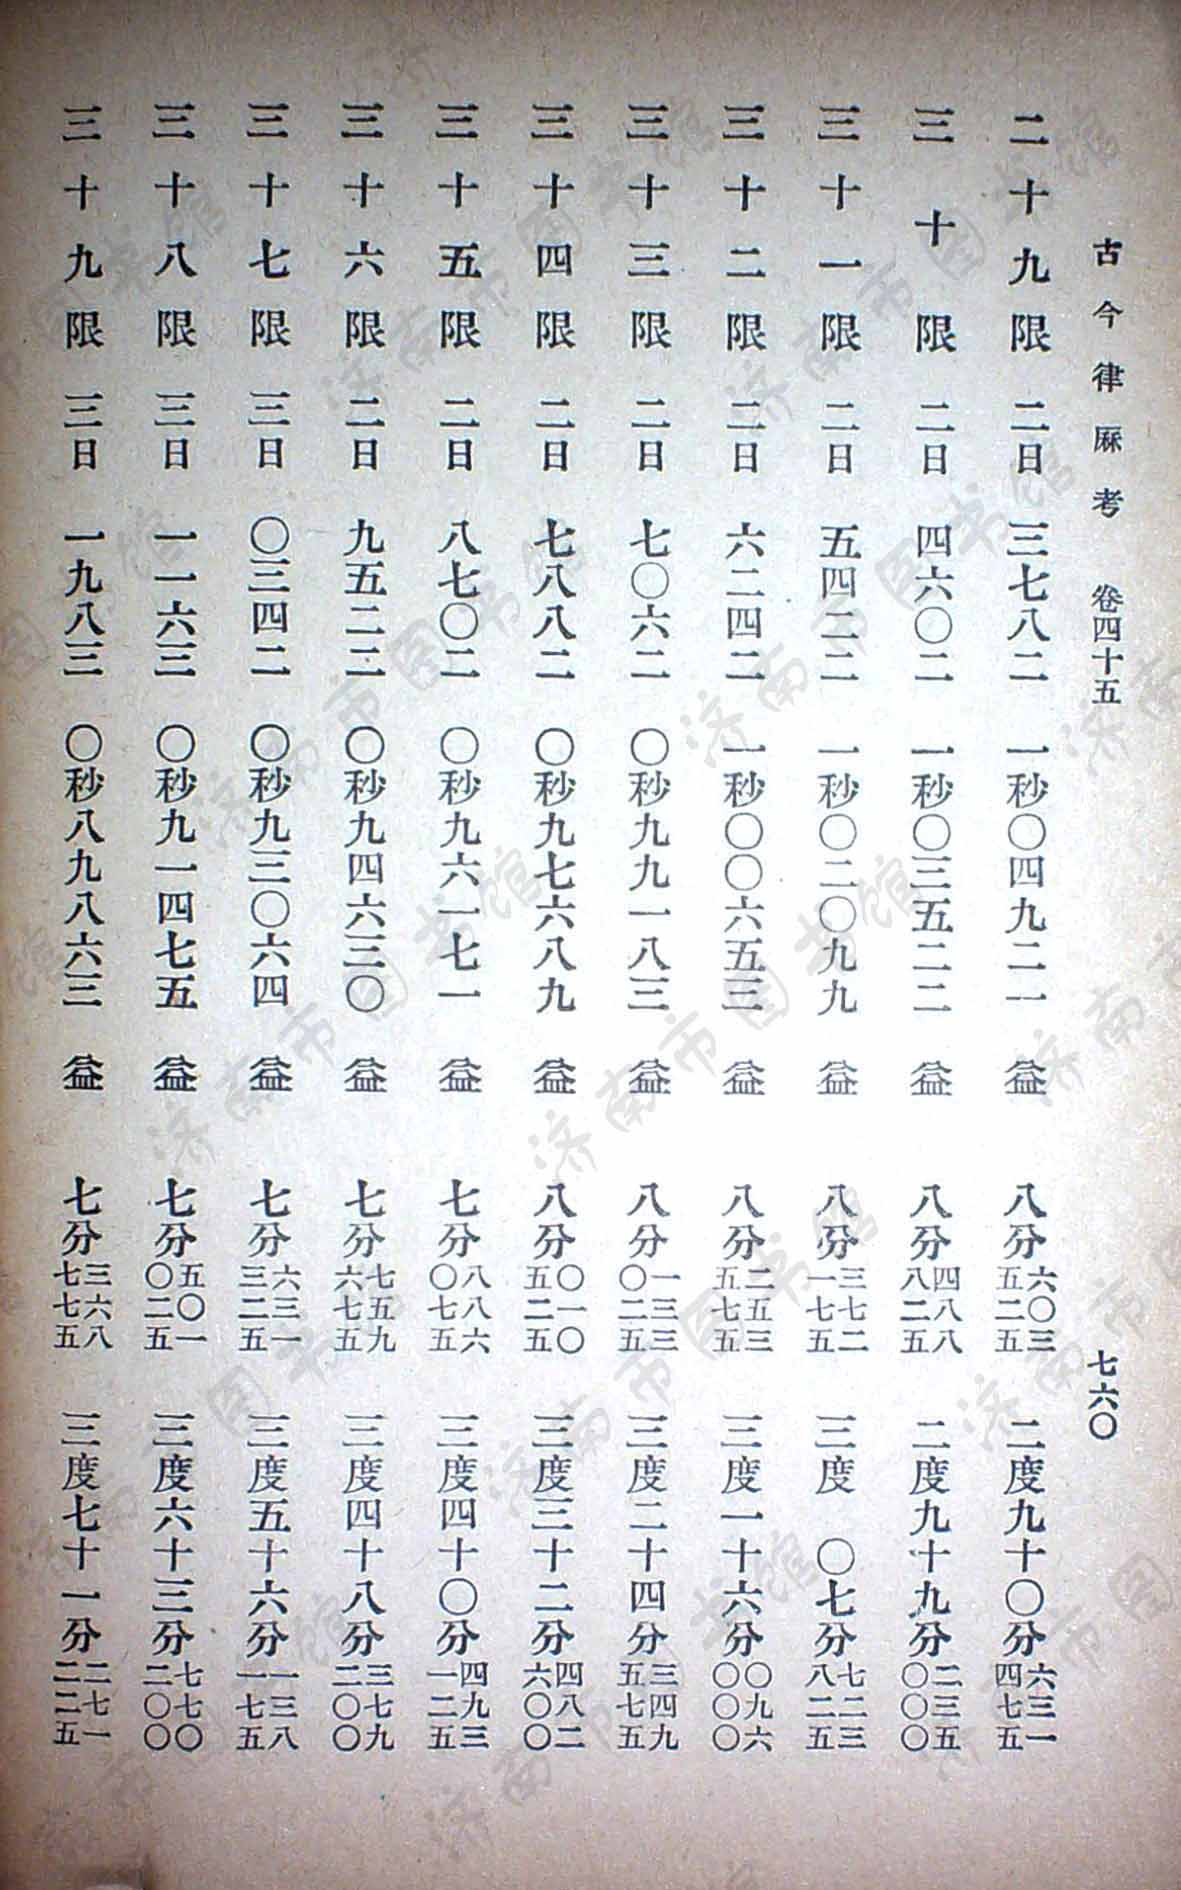 古今律厤考　卷四十五　七六〇
二十九限　二日　三七八二　一秒〇四九二一　益　八分六〇三五二五　二度九十〇分六三一四七五
三十限　二日　四六〇二　一秒〇三五二二　益　八分四八八八二五　二度九十九分二三五〇〇〇
三十一限　二日　五四二二　一秒〇二〇九九　益　八分三七二一七五　三度〇七分七二三八二五
三十二限　二日　六二四二　一秒〇〇六五三　益　八分二五三五七五　三度一十六分〇九六〇〇〇
三十三限　二日　七〇六二　〇秒九九一八三　益　八分一三三〇二五　三度二十四分三四九五七五
三十四限　二日　七八八二　〇秒九七六八九　益　八分〇一〇五二五　三度三十二分四八二六〇〇
三十五限　二日　八七〇二　〇秒九六一七一　益　七分八八六〇七五　三度四十〇分四九三一二五
三十六限　二日　九五二二　〇秒九四六三〇　益　七分七五九六七五　三度四十八分三七九二〇〇
三十七限　三日　〇三四二　〇秒九三〇六四　益　七分六三一三二五　三度五十六分一三八一七五
三十八限　三日　一一六三　〇秒九一四七五　益　七分五〇一〇二五　三度六十三分七七〇二〇〇
三十九限　三日　一九八三　〇秒八九八六三　益　七分三六八七七五　三度七十一分二七一二二五
济南市图书馆